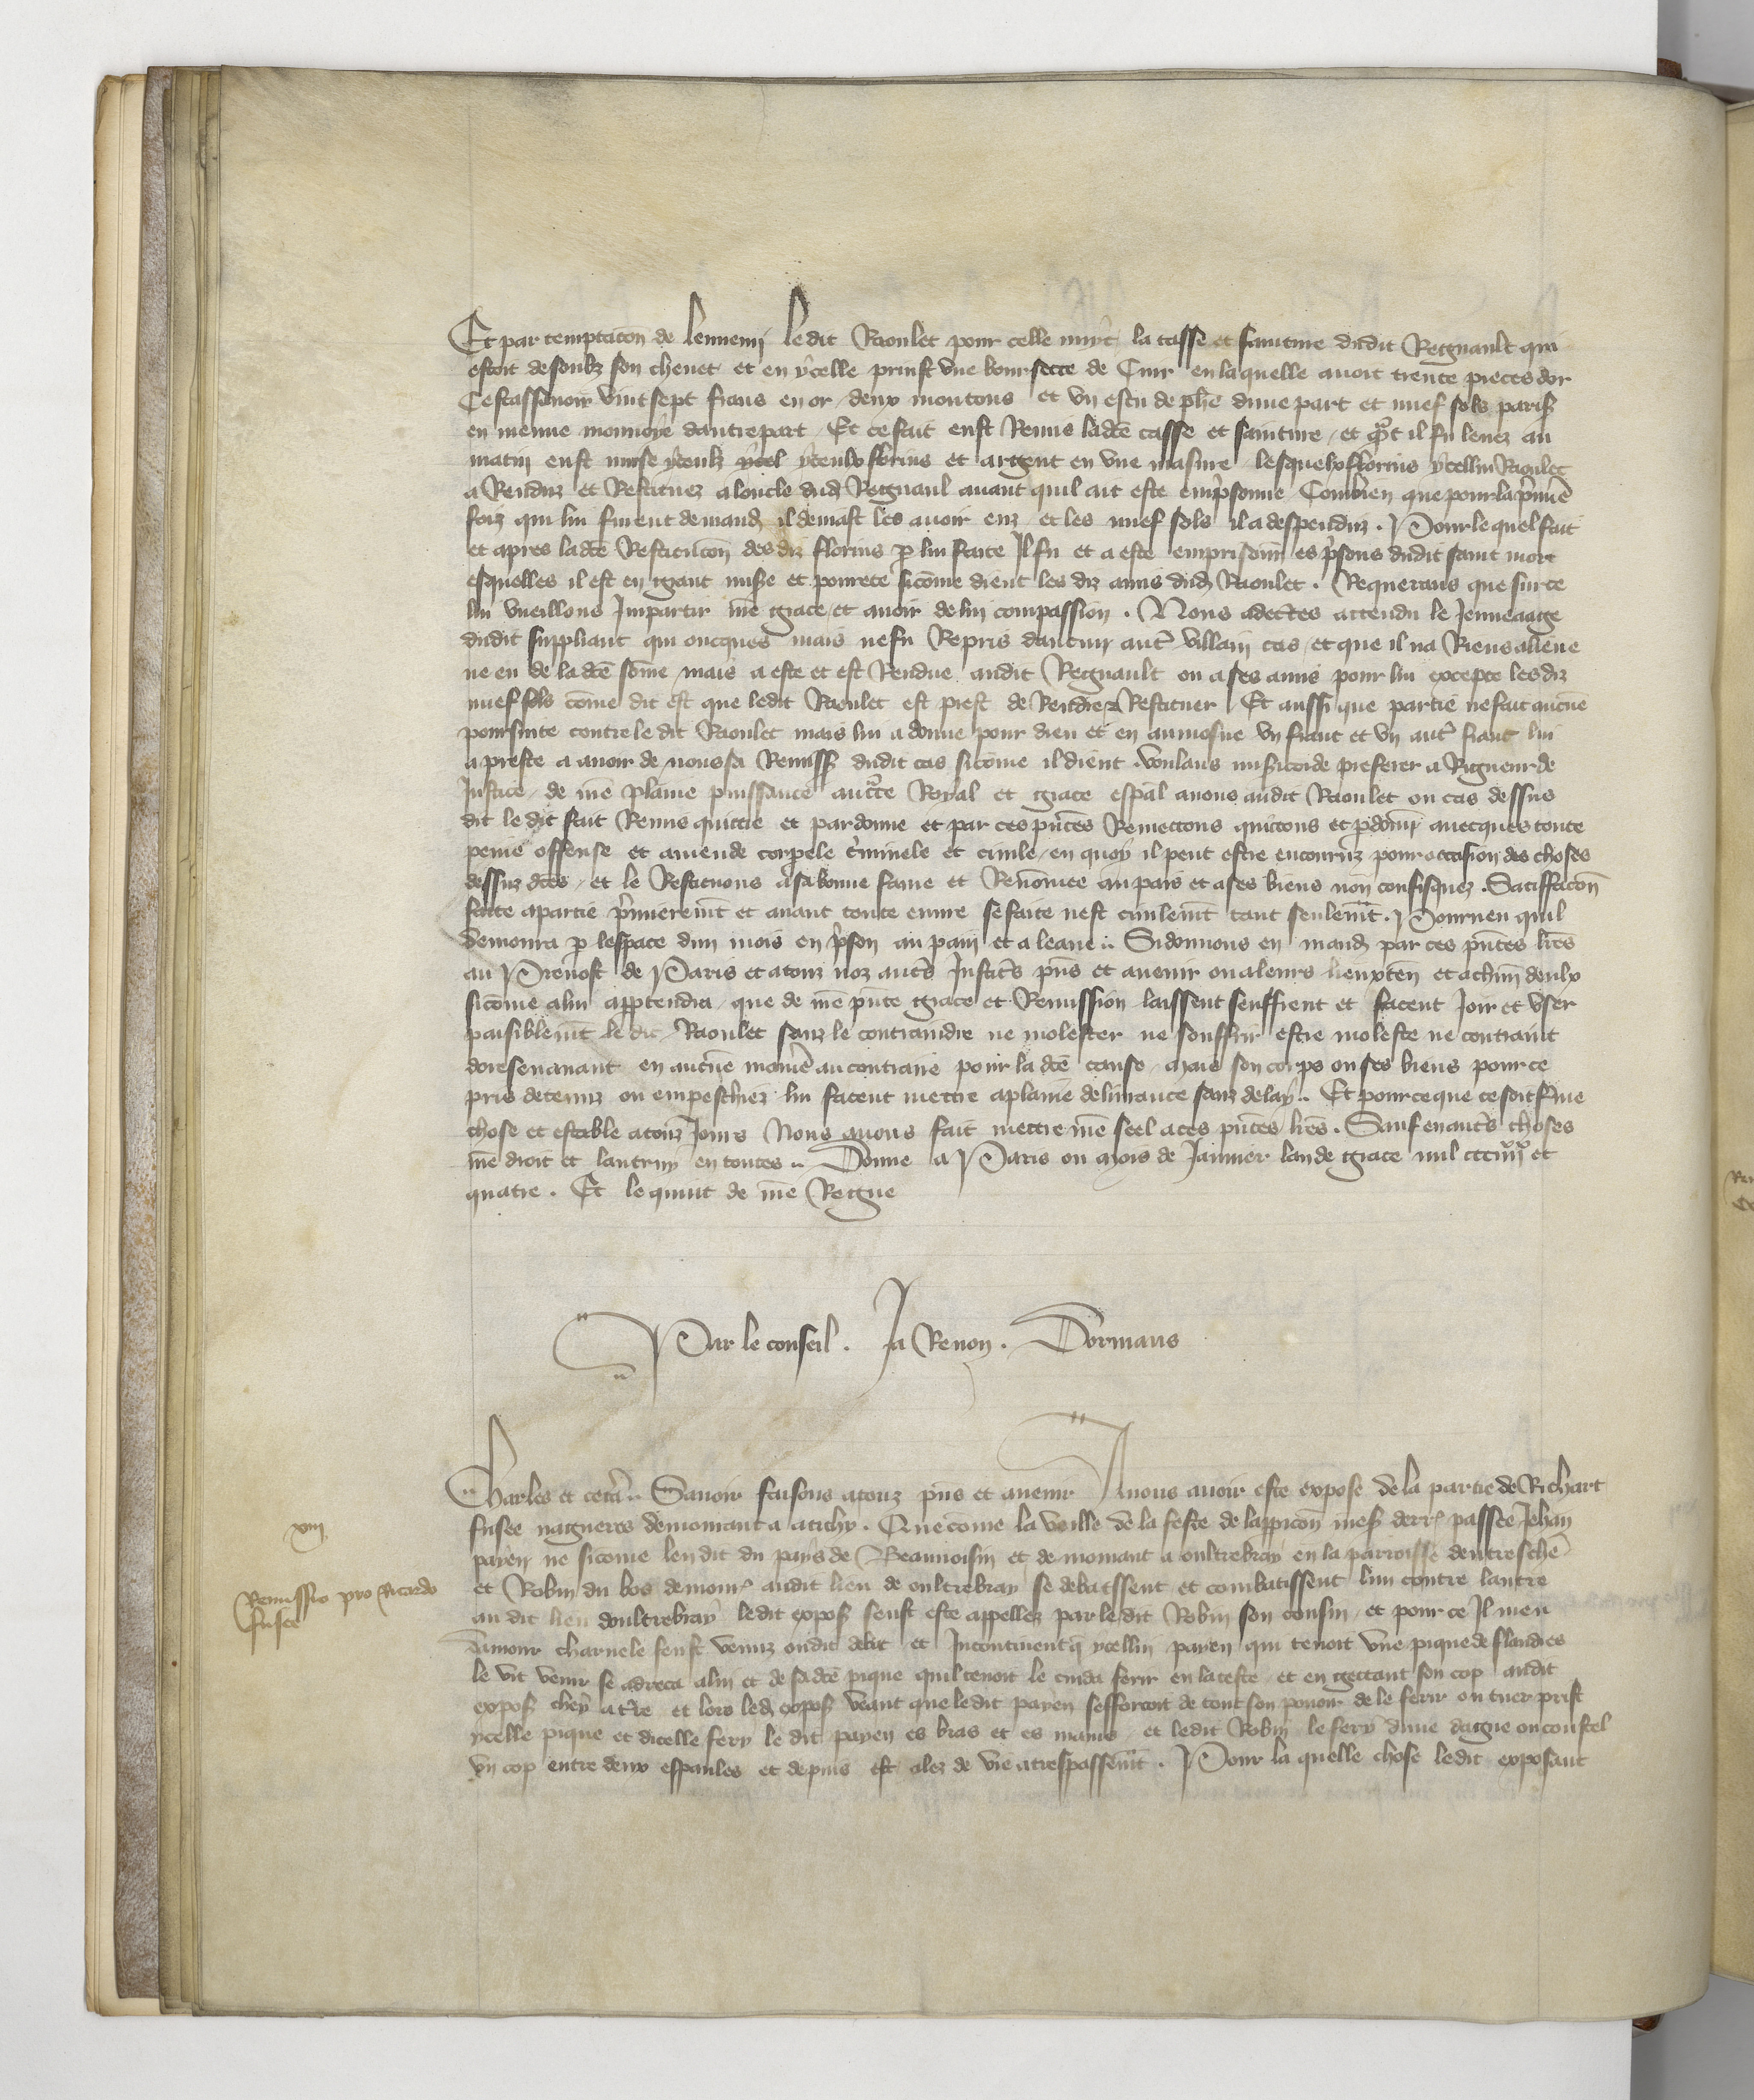 Et par temptacōn de lennemi ledit Raoulet pour celle nuyt la tasse et sainture dudit Regnault qui
estoit desoubz son chevet et en ycelle prinst vne boursette de Cuir en laquelle avoit trente pieces dor
Cestassavoir vint sept frans en or deux moutons et vn escu de phe dune part et nuef sols paris
en menue monnoye dautre part Et ce fait eust Remis ladcē tasse et sainture et qt il fu levez au
matin eust musse yceulx ycel yceulx florins et argent en vne masure lesquelx florins ycellui Raoulet
a Renduz et Restituez a loncle dud Regnaul avant quil ait este emprsonne Combien que pour la prmiē
foiz qui lui furent demand il deniast les avoir euz et les nuef sols il a despenduz . Pour le quel fait
et apres ladcē Restitucōn des diz florins p lui faite Il fu et a este emprisonn es prsons dudit saint mort
esquelles il est en grant misse et povrete sicōme dient les diz amis dud Raoulet . Requerans que sur ce
lui vueillons Impartir nrē grace et avoir de lui compassion . Nous adectes attendu le Jenneaage
dudit suppliant qui oncques mais ne fu Repris daucun autr villain cas et que il na Riens alleue
ne eu de ladcē sōme mais a este et est Rendue audit Regnault ou a ses amis pour lui excepte les diz
nuef sols cōme dit est que ledit Raoulet est prest de Rendre & Restituer Et aussi que partie ne fait aucune
poursuite contre le dit Raoulet mais lui a donne pour dieu et en aumosne vn franc et vn autr franc lui
a preste a avoir de nous sa Remiss dudit cas sicōme il dient . voulans misicorde preferer a Rigueur de
Justice de nrē plaine puissance auctte Royal et grace espāl avons audit Raoulet ou cas dessus
dit le dit fait Remis quictie et pardonne et par ces pñtes Remectons quictons et pdonn avecques toute
peine offense et amende corpele crminele et civile en quoy il peut estre encouruz pour occasion des choses
dessuz dcēs et le Restituons a sa bonne fame et Renōmee au pais et a ses biens non confisquez . Satiffacōn
faite a partie prmierem̄t et avant toute euure se faite nest civilem̄t tant seulem̄t . Pourveu quil
demoura p lespace dun mois en prson au pain et a leaue . Si donnons en mand par ces pñtes lrēs
au Prevost de Paris et a touz noz autrs Justicrs pñs et avenir ou a leurs lieuxten et a chūn deulx
sicōme a lui apptendra que de nrē pñte grace et Remission laissent seuffrent et facent Joir et vser
paisiblem̄t le dit Raoulet sanz le contraindre ne molester ne souffrir estre moleste ne contraint
doresenavant en aucune manre au contraire pour la dcē cause mais son corps ou ses biens pour ce
pris detenuz ou empeschiez lui facent mettre a plaine delivrance sanz delay . Et pour ce que ce soit ferme
chose et estable a touz Jours Nous avons fait mettre nrē seel a ces pñtes lrēs . Sauf en autrs choses
nrē droit et lautruy en toutes . Donne a Paris ou mois de Janvier lan de grace mil ccciiiixx et
quatre . Et le quint de nrē Regne
Par le conseil . Ja Renon . Dormans
Charles et cetera . Savoir faisons a touz pñs et avenir A nous avoir este expose de la partie de Richart
fusee nagueres demourant a atichy . Que cōme la veille de la feste de lappicōn mess derr passee Jehan
payen ne sicome len dit du pays de Beauvoisin et demourant a oultrebray en la parroisse dentresche
et Robin du bos demour audit lieu de oultrebray se debatissent et combatissent lun contre lautre
au dit lieu doultrebray ledit expos feust este appellez par le dit Robin son cousin et pour ce Il meu
damour charnele feust venuz oudit debat et Incontinent q ycellui payen qui tenoit vne pique de flandres
le vit venir se adreca a lui et de sa dcē pique quil tenoit le cuida ferir en la teste et en gectant son cop audit
expos chey a trre et lors led expos veant que ledit payen sefforcoit de tout son povoir de le ferir ou tuer prist
ycelle pique et dicelle fery le dit payen es bras et es mains et ledit Robin le fery dune dague ou coustel
vn cop entre deux espaules et depuis est alez de vie a trespassem̄t . Pour la quelle chose ledit exposant
xiiij
Remissio pro Ricardo
fusee